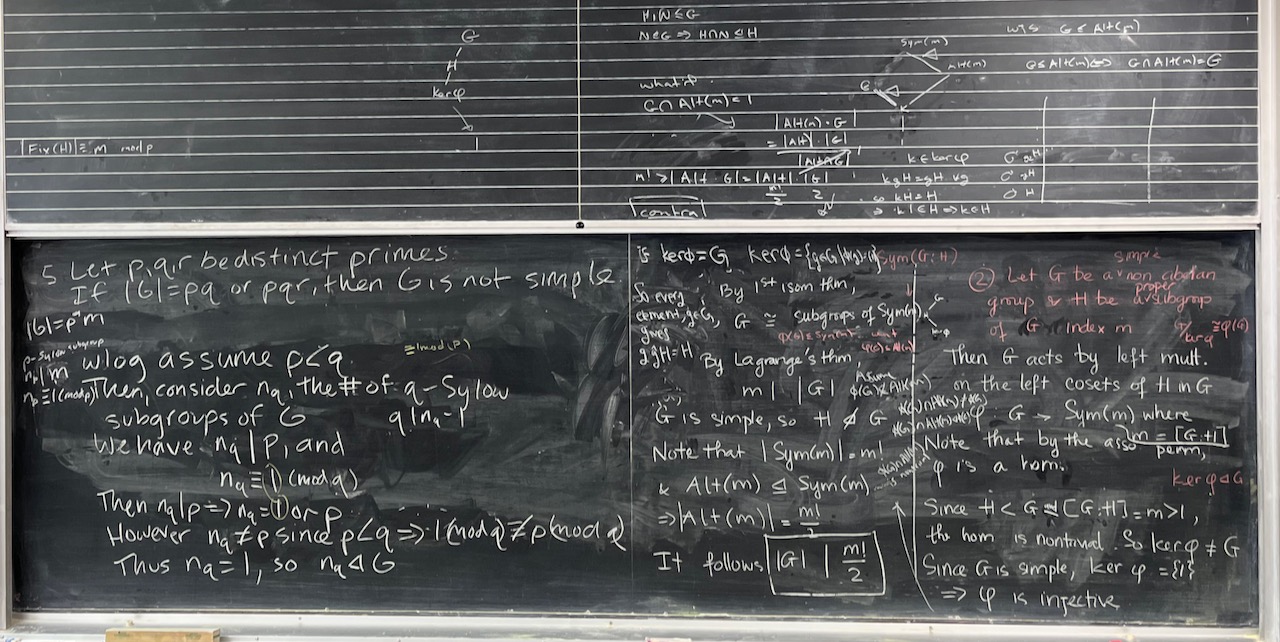 G
H
kerφ
1
|Fix(H)| ≡ m mod p
H,N ≤ G
N⊲G ⇒ H∩N ⊴ H
what if
G∩Alt(m) = 1
|Alt(m)·G|
= |Alt|·|G|
|Alt∩G|
m! > |Alt·G| = |Alt|·|G|
m!/2 2
contra
Sym(m)
Alt(m)
G
wts G ≤ Alt(m)
G≤Alt(m) ⇔ G∩Alt(m)=G
k ∈ kerφ
kgH=gH ∀g
so kH=H
⇒ k·1∈H ⇒ k∈H
5 Let p,q,r be distinct primes.
If |G|=pq or pqr, then G is not simple.
|G|=p^n m
p-Sylow subgroup
n_p | m
n_p ≡ 1 (mod p)
wlog assume p<q.
≡ 1 mod(p)
Then, consider n_q, the # of q-Sylow
subgroups of G
q | n_q - p
We have n_q | p, and
n_q ≡ 1 (mod q)
Then n_q | p ⇒ n_q = 1 or p.
However n_q ≠ p since p<q ⇒ 1 (mod q) ≢ p (mod q)
Thus n_q = 1, so n_q ⊲ G
is kerφ=G
Sym(G:H)
So every
element, g∈G,
gives
By 1st isom thm,
G ≅ subgroups of Sym(m)
By Lagrange's thm
m | |G|
Assume
G is simple, so H ⋬ G
Note that |Sym(m)| = m!
& Alt(m) ⊴ Sym(m)
⇒ |Alt(m)| = m!/2
It follows |G| | m!/2
② Let G be a simple non abelian
group & H be a proper subgroup
of G index m
G/kerφ ≅ φ(G)
Then G acts by left mult.
on the left cosets of H in G
φ: G → Sym(m) where
m = [G:H]
Note that by the asso perm,
φ is a hom.
ker φ ⊲ G
Since H < G & [G:H] = m > 1,
the hom is nontrivial. So ker φ ≠ G
Since G is simple, ker φ = {1}
⇒ φ is injective